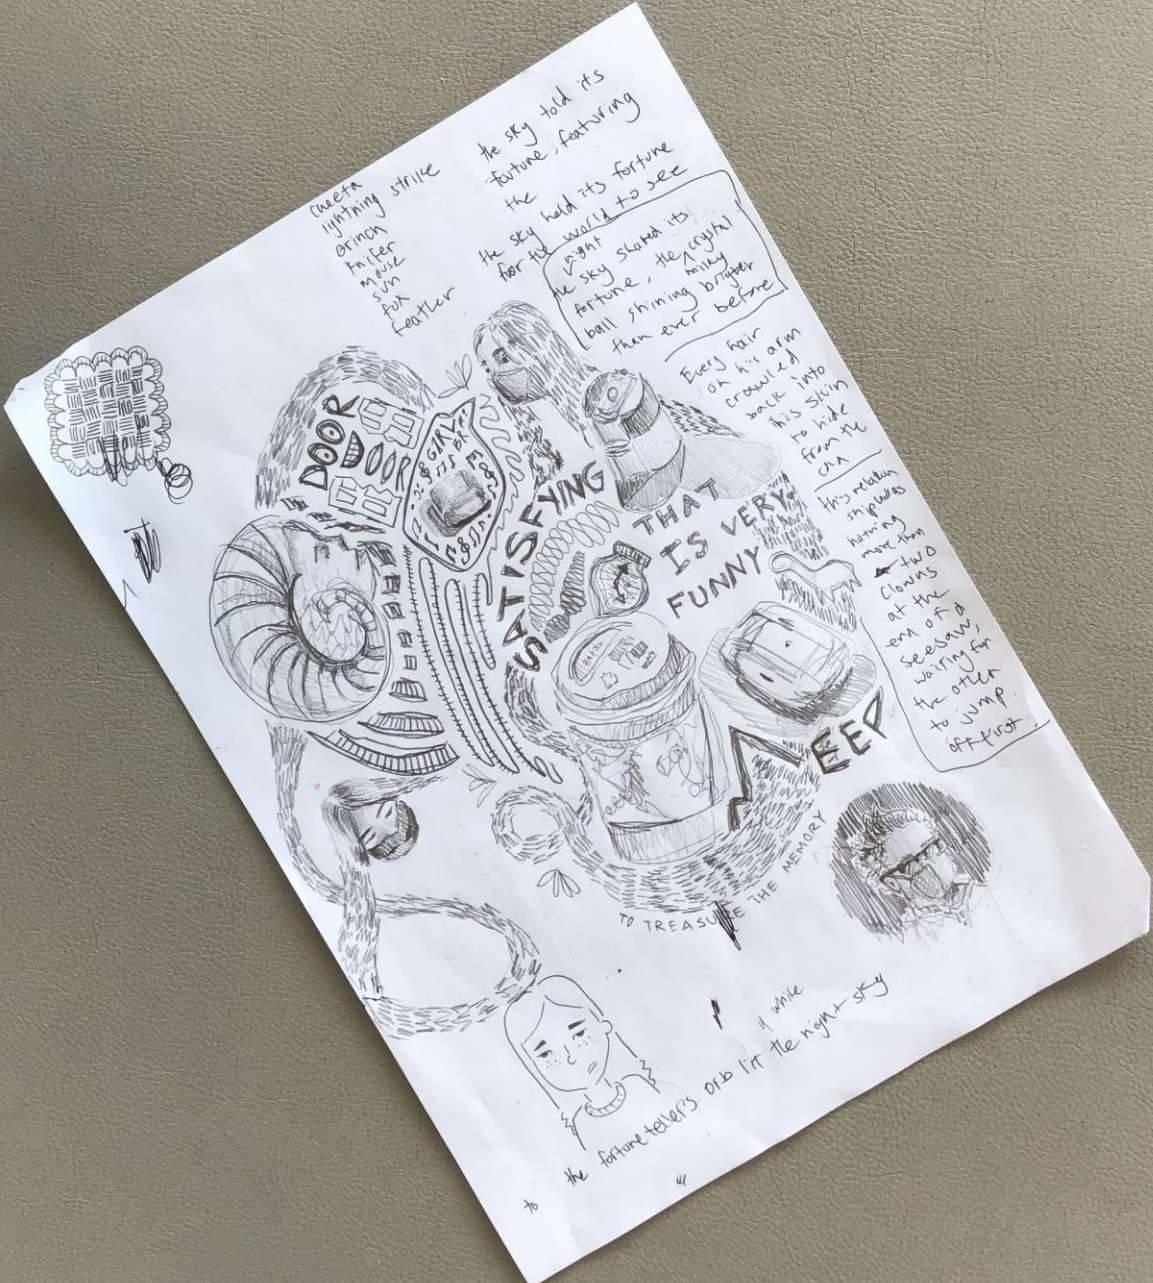 cheeta
lightning strike
Grinch
knifer
mouse
sun
fox
feather
the sky told its
fortune, featuring
the
the sky held its fortune
for the world to see
night
the sky skated its
fortune, the crystal
milky
ball shining brighter
than ever before
Every hair
on his arm
crawled
back into
his skin
to hide
from the
this relation
ship was
more than
two
clowns
at the
end of a
seesaw,
waiting for
the other
to jump
off first.
DOOR
DOOR
GIRL
SATISFYING
THAT
IS VERY
FUNNY
NEED
TO TREASURE THE MEMORY
white
to the fortune teller's orb lit the night sky